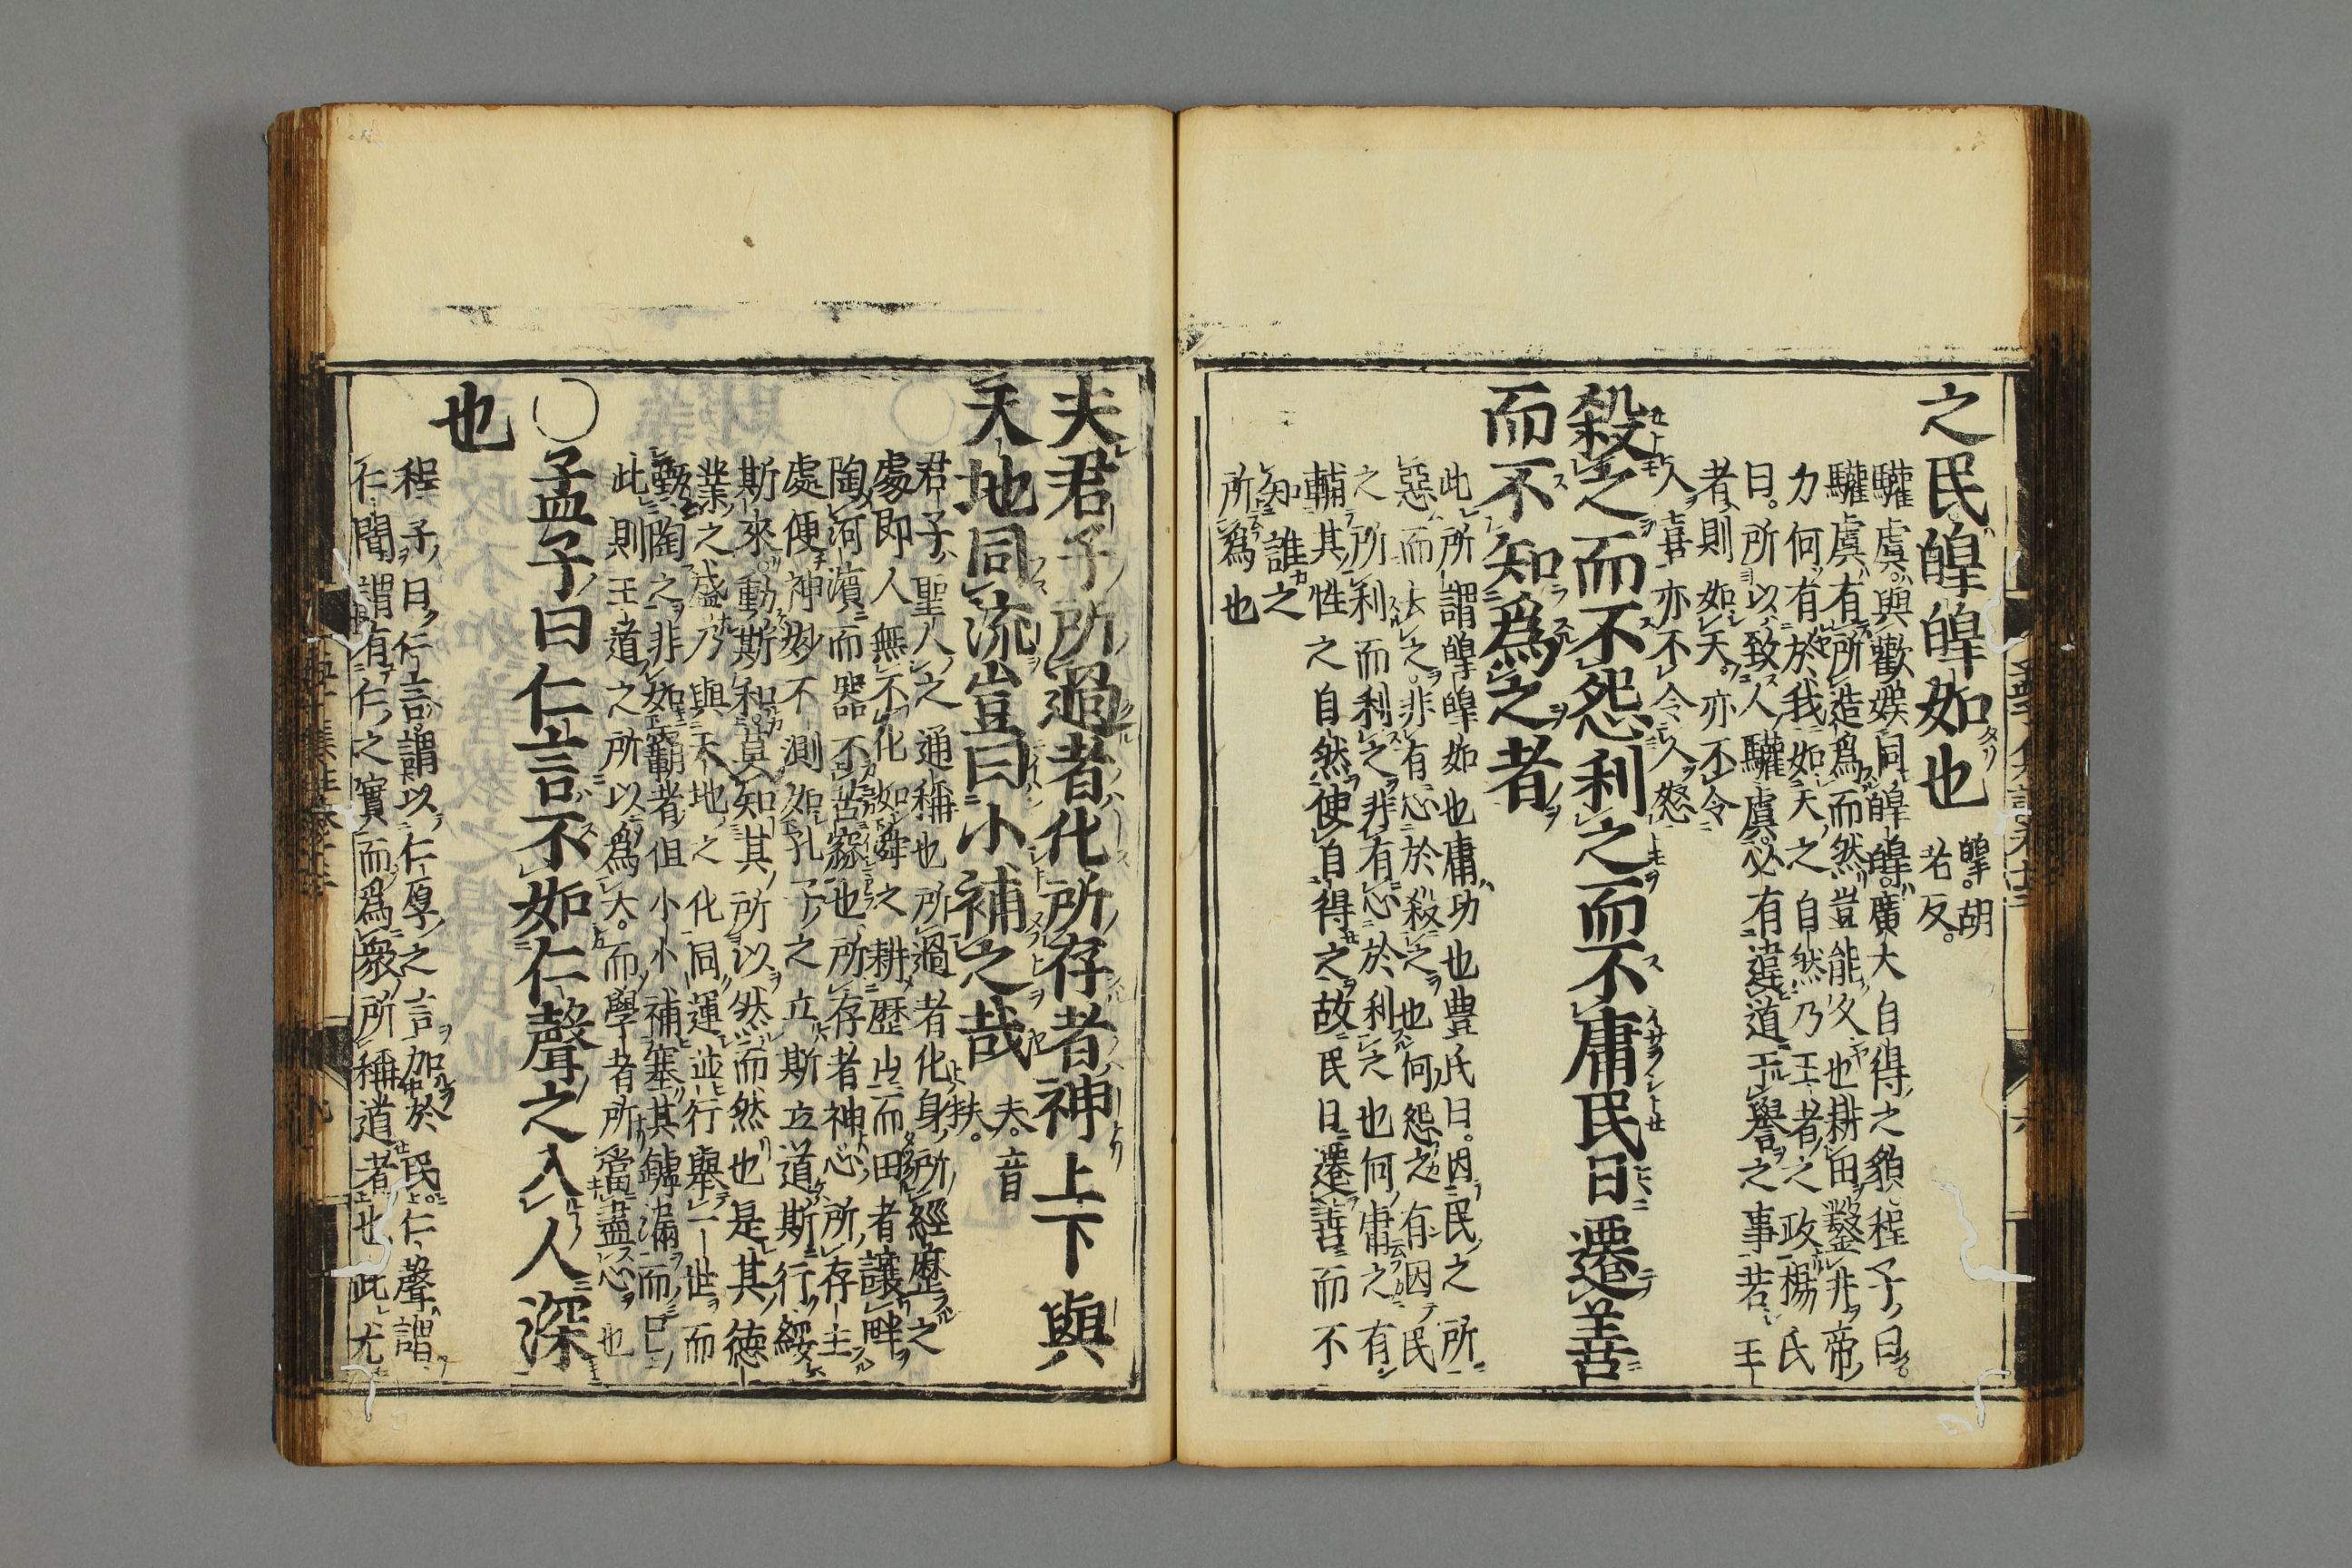 之民皥皥如也 皥。胡
老反。
驩虞。與歡娛同皥皥。廣大自得之貌程子曰。
驩虞有所造爲而然豈能久也耕田鑿井非帝
力何有於我如天之自然乃王者之政楊氏
曰。所以致人驩虞。必有違道干譽之事若王
者則如天。亦不令
人喜亦不令人怒
殺之而不怨利之而不庸民日遷善
而不知爲之者
此所謂皥皥如也庸功也豊氏曰。因民之所
惡而去之。非有心於殺之也何怨之有因民
之所利而利之。非有心於利之也何庸之有
輔其性之自然使自得之故民日遷善而不
知誰之
所爲也
夫君子所過者化所存者神上下與
天地同流豈曰小補之哉 夫。音
扶。
君子聖人之通稱也所過者化身所經歷之
處即人無不化如舜之耕歷山而田者讓畔
陶河濱而器不苦窳也所存者神心所存主
處便神妙不測如孔子之立斯立道斯行綏
斯來。動斯和。莫知其所以然而然也是其德
業之盛乃與天地之化同運並行擧一世而
甄陶之非如霸者但小小補塞其罅漏而已
此則王道之所以爲大。而學者所當盡心也
○孟子曰仁言不如仁聲之入人深
也
程子曰仁言。謂以仁厚之言加於民。仁聲謂
仁聞謂有仁之實而爲衆所稱道者也此尤